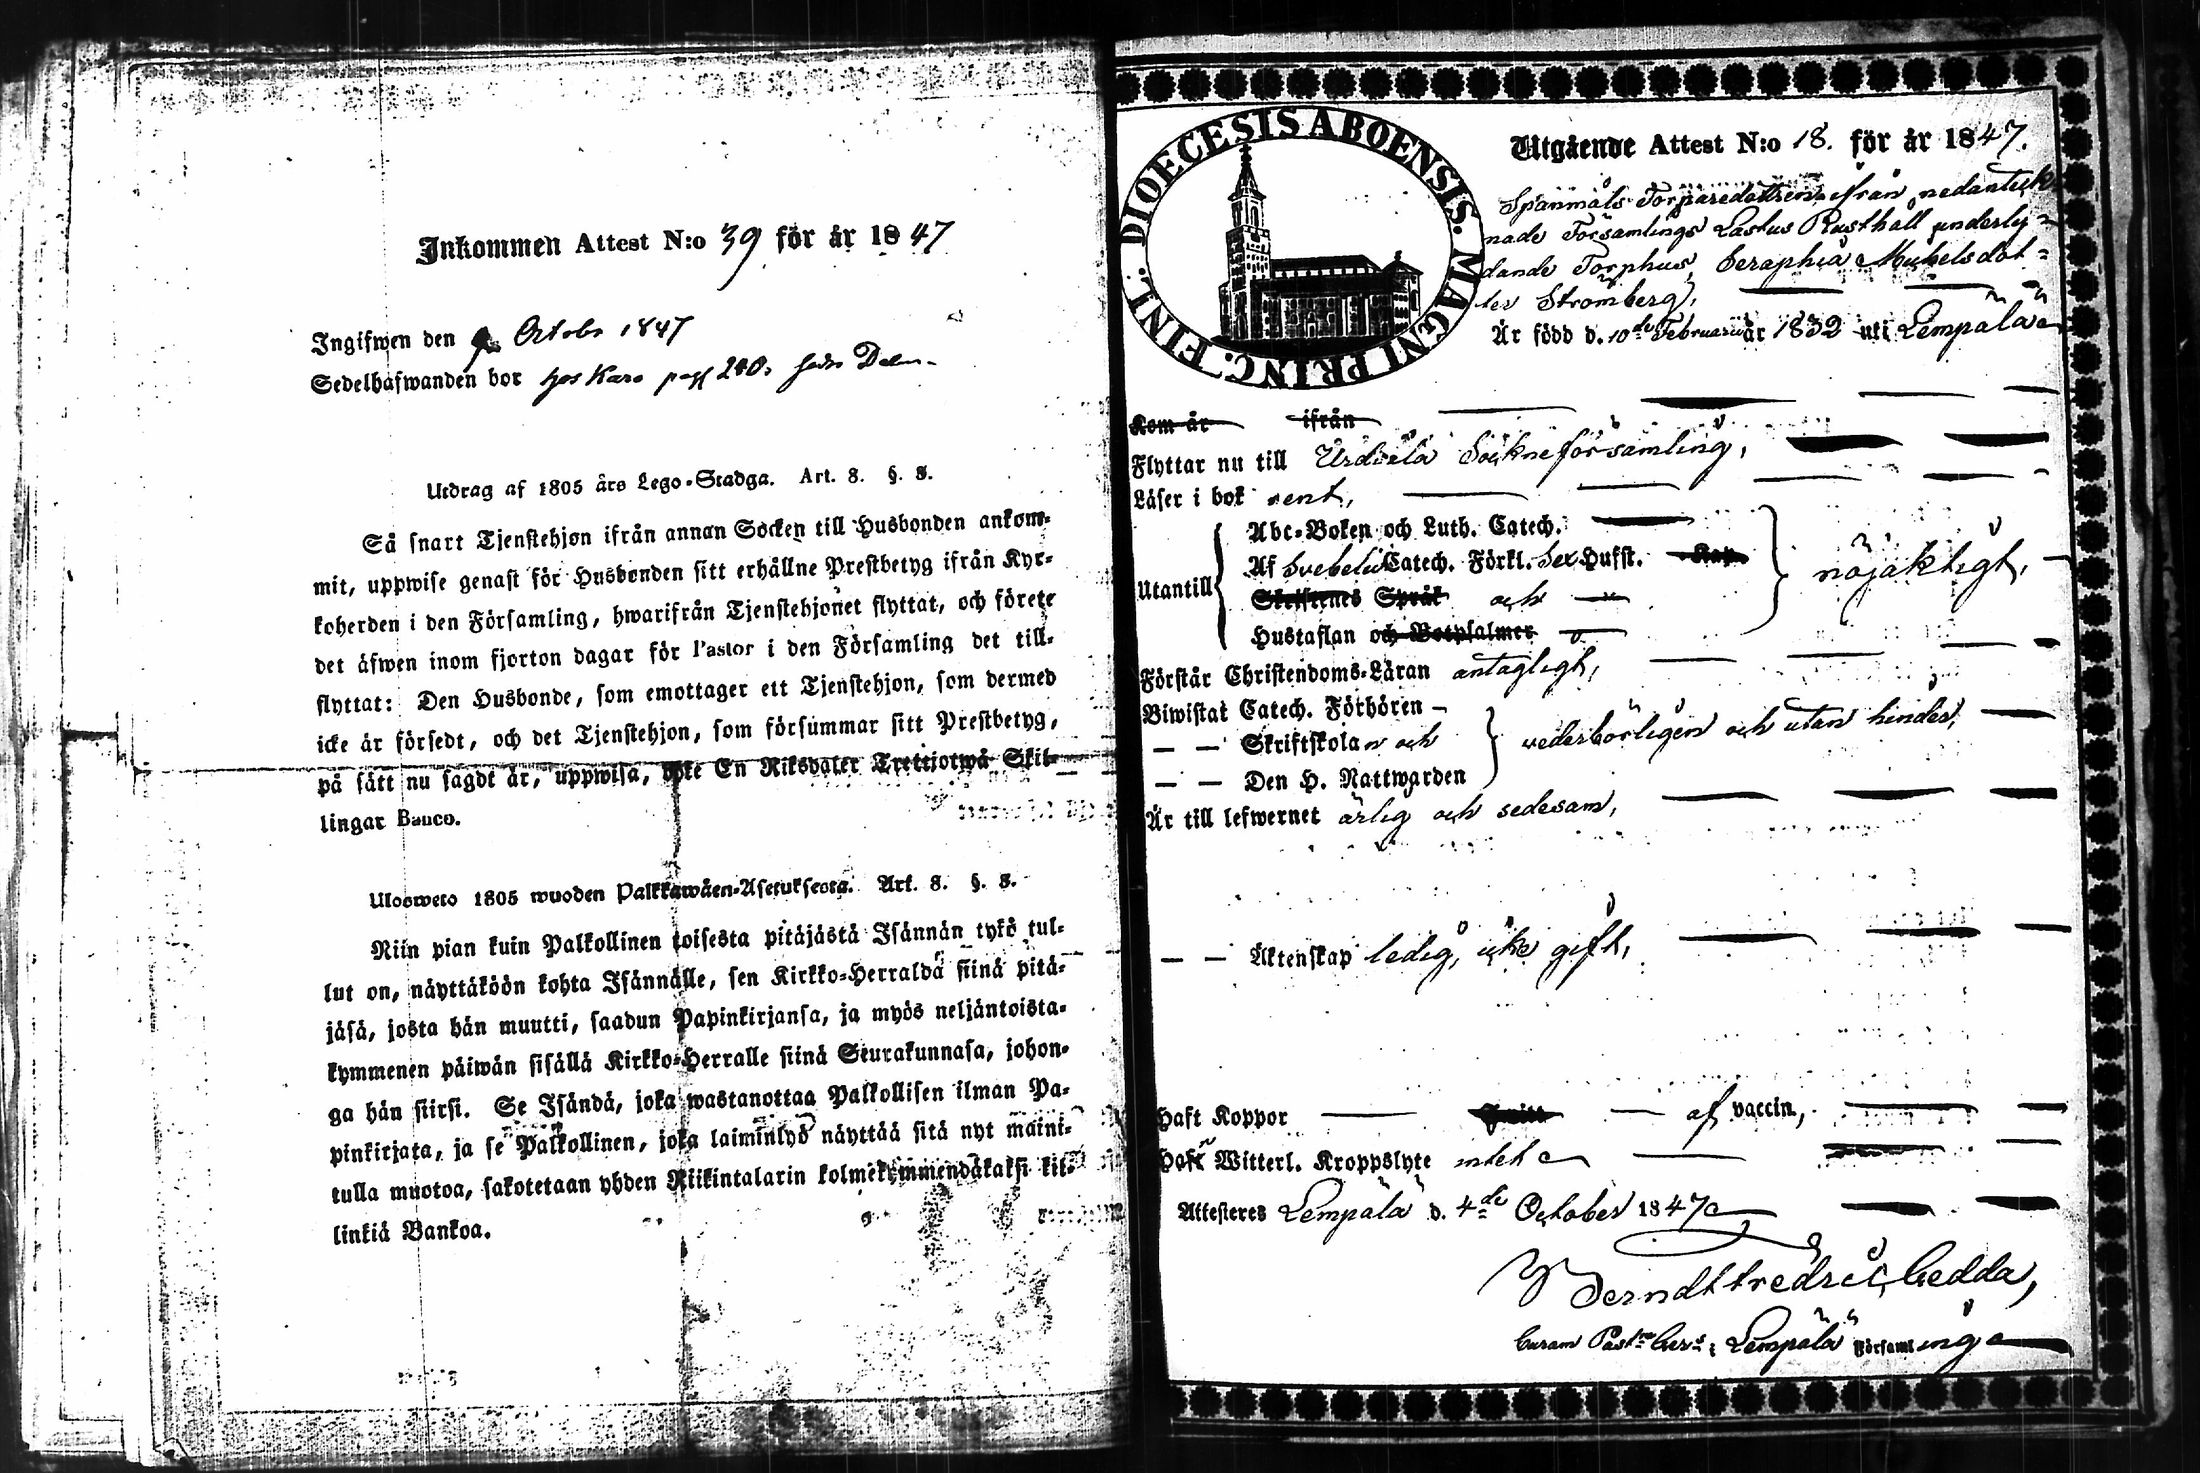 Inkommen Attest N:o 39 för år 1847
Ingifwen den Octobr 1847
Sedelhafwanden bor hos Karo pag 240.
Utdrag af 1805 års Lego-Stadga. Art. 8. §. 3.
Så snart Tjenstehjon ifrån annan Socken till Husbonden ankom-
mit, uppwise genast för Husbonden sitt erhållne Prestbetyg ifrån Kyr-
koherden i den Församling, hwarifrån Tjenstehjonet flyttat, och förete
det äfwen inom fjorton dagar för Pastor i den Församling det till-
flyttat: Den Husbonde, som emottager ett Tjenstehjon, som dermed
icke är försedt, och det Tjenstehjon, som försummar sitt Prestbetyg,
på sätt nu sagdt är, uppwisa, böte En Riksdaler Trettiotwå Skil-
lingar Banco.
Ulosweto 1805 wuoden Palkkawäen-Asetuksesta. Art. 8. §. 3.
Niin pian kuin Palkollinen toisesta pitäjästä Isännän tykö tul-
lut on, näyttäköön kohta Isännälle, sen Kirkko-Herralda siinä pitä-
jäsä, josta hän muutti, saadun Papinkirjansa, ja myös neljäntoista-
kymmenen päiwän sisällä Kirkko-Herralle siinä Seurakunnasa, johon-
ga hän siirsi. Se Isändä, joka wastanottaa Palkollisen ilman Pa-
pinkirjata, ja se Palkollinen, joka laiminlyö näyttää sitä nyt maini-
tulla muotoa, sakotetaan yhden Riikintalarin kolmekymmendäkaksi kil-
linkiä Bankoa.
DIOECESIS ABOENSIS. MAGNI PRINC. FINL.
Utgående Attest N:o 18. för år 1847.
Spanmåls Torparedottren ifrån nedanteck
nade Församlings Lastus Rusthåll underly-
dande Torphus, Seraphia Michelsdot-
ter Strömberg,
Är född d. 10de Februarii år 1832 uti Lempälä
Kom år ifrån
Flyttar nu till Urdiala Sockneförsamling,
Läser i bok rent,
Utantill
Abc-Boken och Luth. Catech.
Af Svebelii Catech. Förkl. Sex Hufst. Kap.
Skriftenes Språk och
Hustaflan och Botpsalmer
nöjaktigt,
Förstår Christendoms-Läran antagligt,
Biwistat Catech. Förhören
— — Skriftskolan och
— — Den H. Nattwarden
vederbörligen och utan hinder,
Är till lefwernet ärlig och sedesam,
— — Äktenskap ledig, icke gift,
Haft Koppor af vaccin,
Haft Witterl. Kroppslyte intet
Attesteres Lempälä d. 4de October 1847
Berndt Fredric Gedda,
Curam Past:m Ger:s i Lempälä Församling